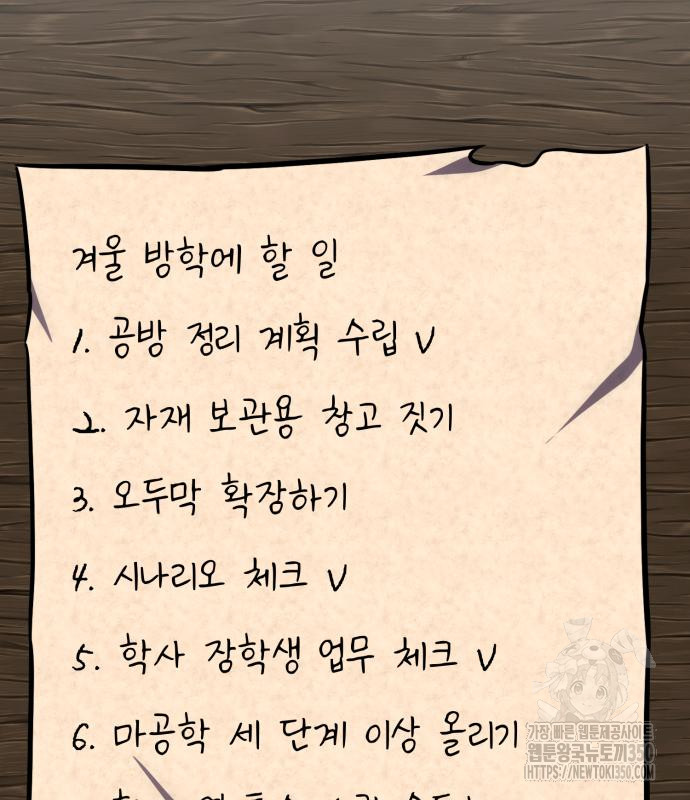 겨울 방학에 할 일
1. 공방 정리 계획 수립 V
2. 자재 보관용 창고 짓기
3. 오두막 확장하기
4. 시나리오 체크 V
5. 학사 장학생 업무 체크 V
6. 마공학 세 단계 이상 올리기
가장 빠른 웹툰제공사이트
웹툰왕국뉴토끼350
HTTPS://NEWTOKI350.COM